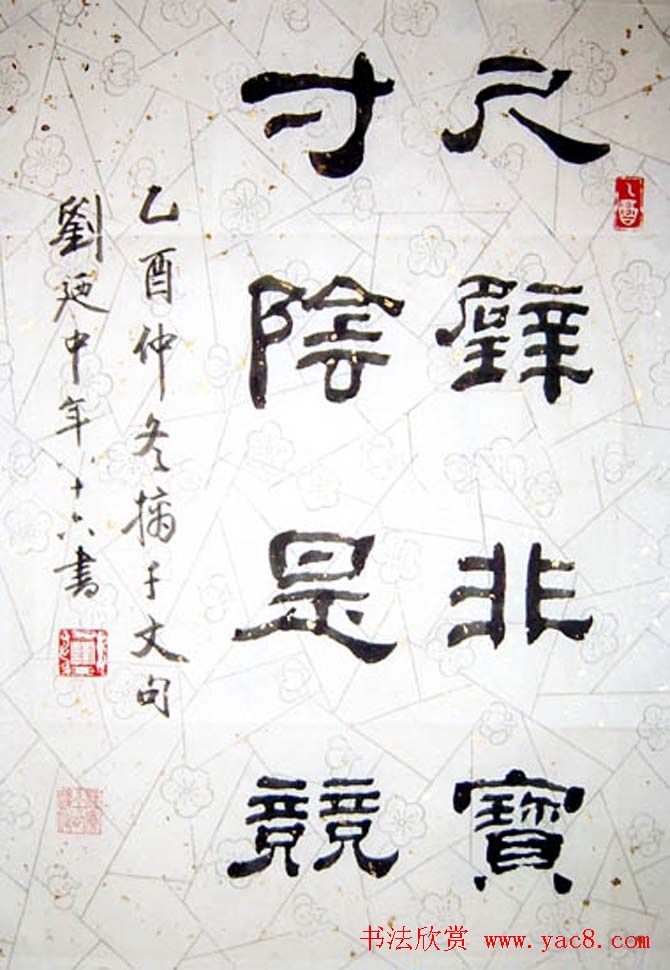 尺璧非寶
寸陰是競
乙酉仲冬摘千文句
劉廷中年八十六書
书法欣赏 www.yac8.com